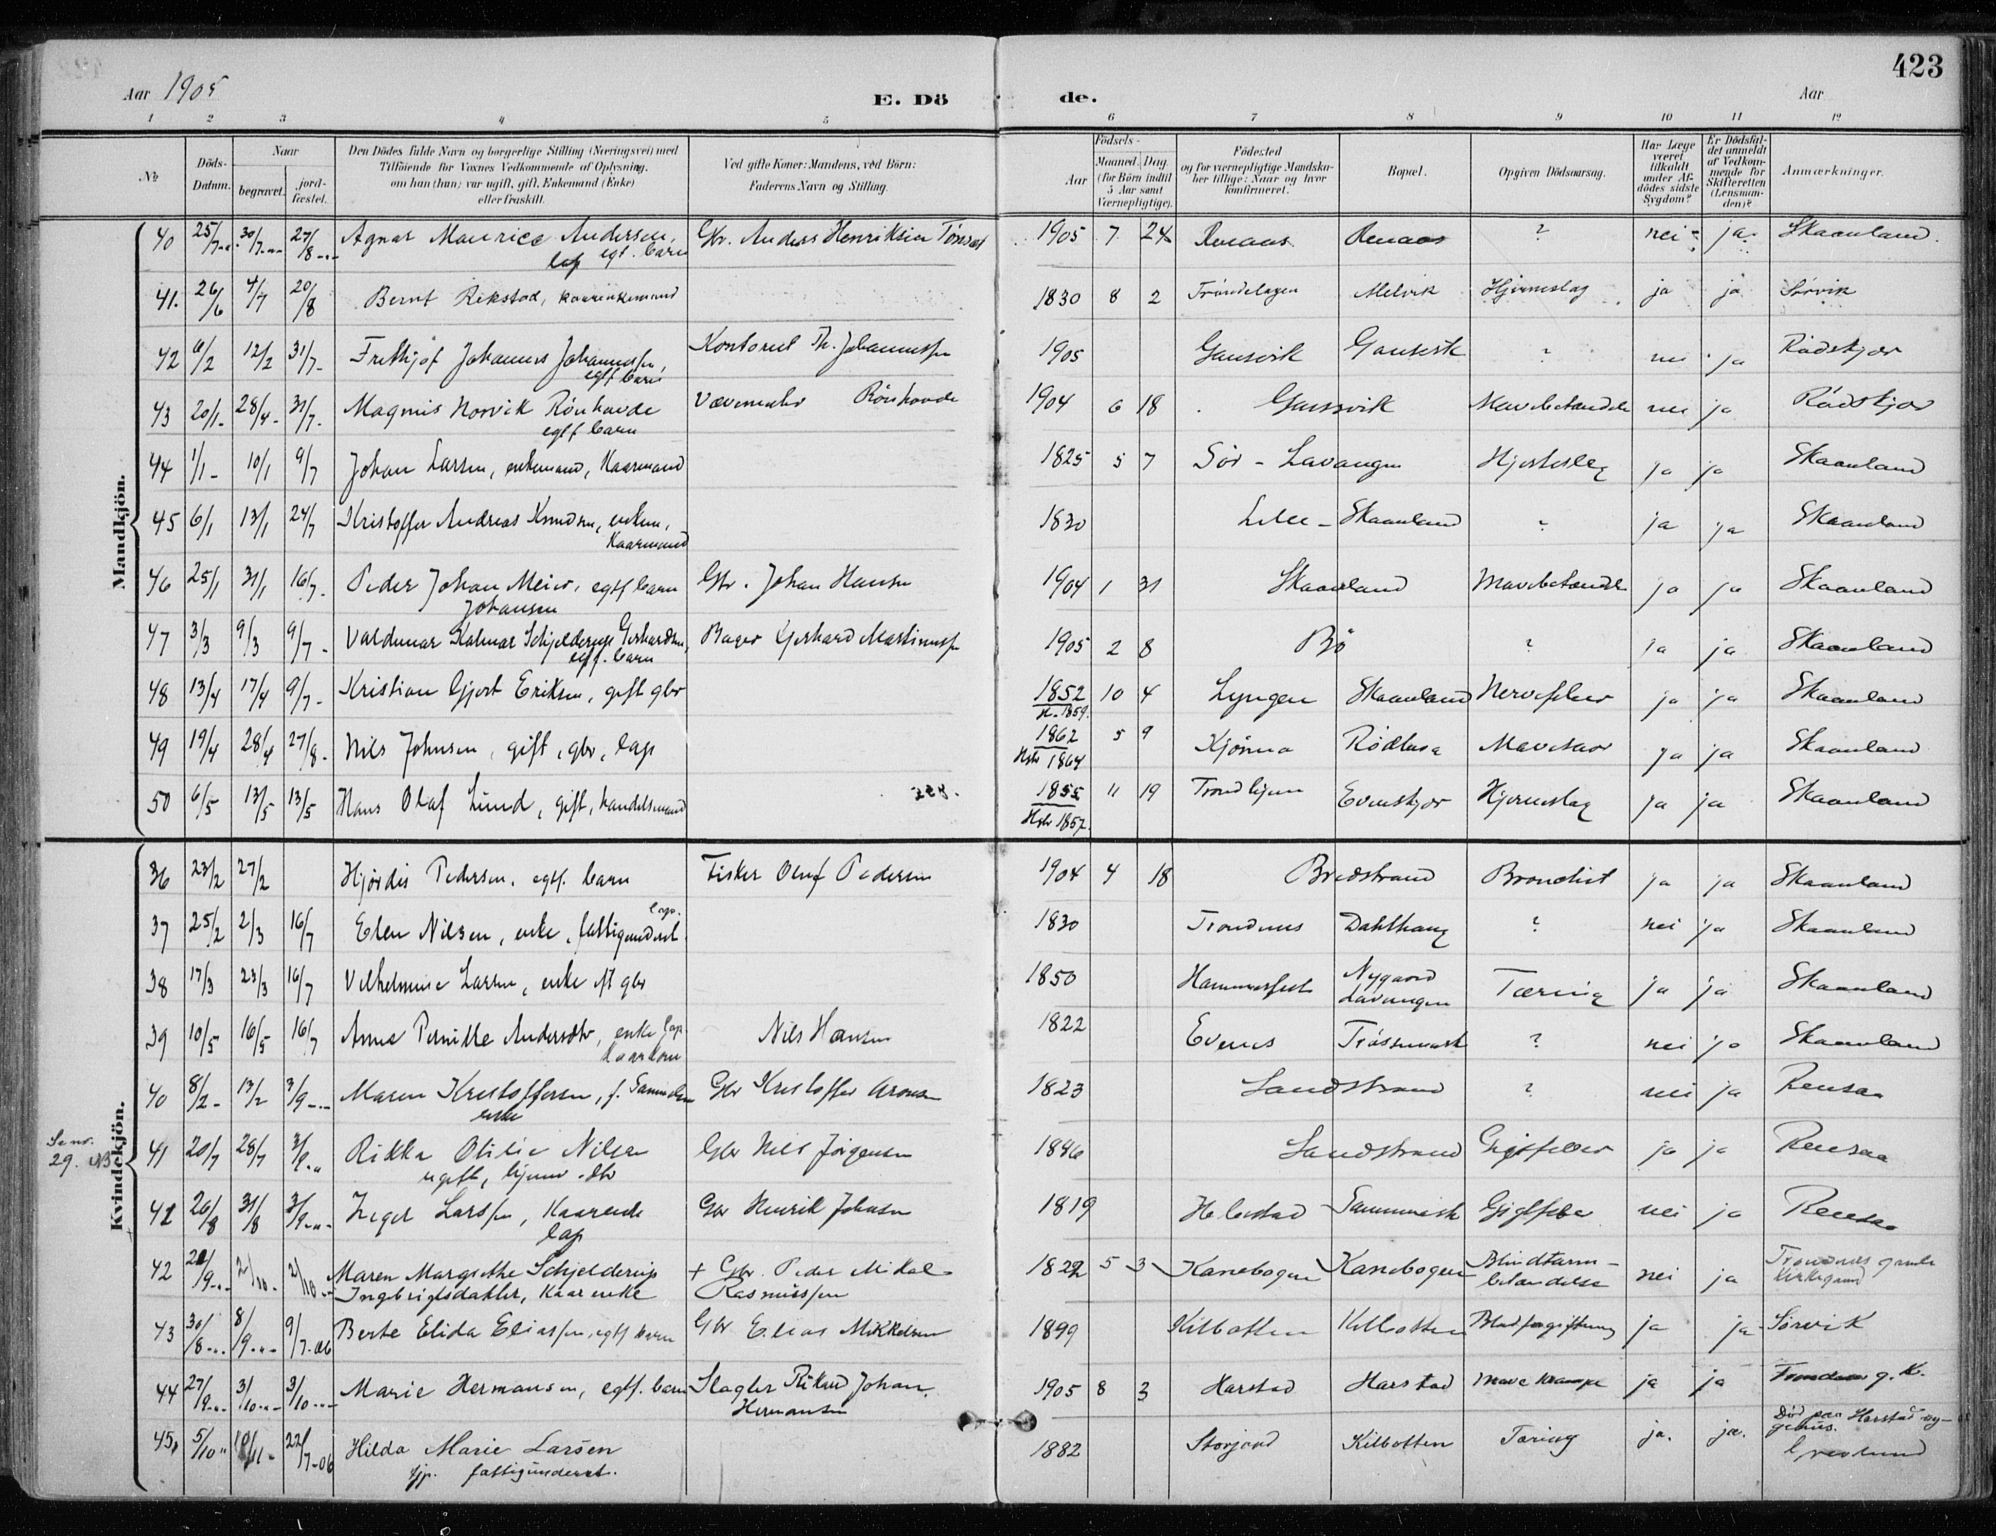 423
Aar 1905
E. Dö
de.
Aar
1 2 3 4 5 6 7 8 9 10 11 12
№
Döds-Datum.
Naar
begravet.
jord-fæstet.
Den Dödes fulde Navn og borgerlige Stilling (Næringsvei) med
Tilföiende for Voxnes Vedkommende af Oplysning,
om han (hun) var ugift, gift, Enkemand (Enke)
eller fraskilt.
Ved gifte Koner: Mandens, ved Börn:
Faderens Navn og Stilling.
Födsels-
Aar
Maaned. Dag.
(for Börn indtil
5 Aar samt
Værnepligtige).
Födested
og for værnepligtige Mandska-
ber tillige: Naar og hvor
konfirmeret.
Bopæl.
Opgiven Dödsaarsag.
Har Læge
været
tilkaldt
under Af-
dödes sidste
Sygdom?
Er Dödsfal-
det anmeldt
af Vedkom-
mende for
Skifteretten
(Lensman-
den)?
Anmærkninger.
Mandkjön.
40 25/7 30/7 27/8 Agnar Maurice Andersen, Gbr. Anders Henriksen 1905 7 24 Renaas Renaas ? nei ja Skaanland.
lap egt. barn
41. 26/6 4/7 20/8 Bernt Rekstad, kaarenkemand 1830 8 2 Trøndelagen Melvik Hjerneslag ja ja Sørvik
42 6/2 12/2 31/7 Frithjof Johannes Johannessen, Kontorist Th. Johannessen 1905 Gansvik Gansvik ? nei ja Rødskjær
egtf barn
43 20/1 28/4 31/7 Magnus Norvik Rönhovde Rönhovde 1904 6 18 Gansvik Mavebetændelse nei ja Rödskjær
egtf barn
44 1/1 10/1 9/7 Johan Larsen, enkemand, Kaarmand 1825 5 7 Sör-Lavangen Hjerteslag ja ja Skaanland
45 6/1 13/1 24/7 Kristoffer Andreas Knudsen, enkem, 1830 Lille-Skaanland ? ja ja Skaanland
Kaarmand
46 25/1 31/1 16/7 Peder Johan Meier, egtf barn Gbr. Johan Hansen 1904 1 31 Skaanland Mavebetændelse ja ja Skaanland
Johansen
47 3/3 9/3 9/7 Valdemar Hjalmar Schjelderup Gerhardsen, Bager Gerhard Martinussen 1905 2 8 Bö ? ja ja Skaanland
egtf. barn
48 13/4 17/4 9/7 Kristian Gjert Eriksen, gift gbr 1852 10 4 Lyngen Skaanland Nervefeber ja ja Skaanland
1859.
49 19/4 28/4 27/8 Nils Johnsen, gift, gbr, lap 1862 5 9 Kjönna Mavesaar ja ja Skaanland
1864
50 6/5 13/5 13/5 Hans Olaf Lund, gift, handelsmand 1855 11 19 Trondhjem Evenskjær Hjerneslag ja ja Skaanland
1857.
Kvindekjön.
36 23/2 27/2 Hjördis Pedersen, egtf. barn Fisker Oluf Pedersen 1904 4 18 Bredstrand Bronchit ja ja Skaanland
lap.
37 25/2 2/3 16/7 Elen Nilsen, enke, fattigunderst. 1830 Trondenes ? nei ja Skaanland
38 17/3 23/3 16/7 Vilhelmine Larsen, enke eft gbr 1850 Hammerfest Nygaard Tæring ja ja Skaanland
Lavangen
39 10/5 16/5 16/7 Anne Pernille Andersdtr, enke lap Nils Hansen 1822 Evenes ? nei ja Skaanland
Kaarkone
40 8/2 13/2 3/9 Maren Kristoffersen, f. Samuelsen Gbr Kristoffer Aronsen 1823 Sandstrand ? nei ja Rensaa
enke
29. NB
41 20/7 28/7 3/9 Rikka Otilie Nilsen Gbr Nils Jörgensen 1896 Sandstrand Gigtfeber ja ja Rensaa
ugift, hjemv. dtr
42 26/8 31/8 3/9 Inger Larssen, Kaarenke Gbr Henrik Johnsen 1819 Gigtfeber nei ja Rensaa
lap
42 2/10 2/10 Maren Margrethe Schjelderup + Gbr. Peder Mikal 1822 5 3 Kanebogen Kanebogen Blindtarm- nei ja Trondenes gamle
Ingbrigtsdatter, Kaarenke Rasmussen betændelse Kirkegaard
43 30/8 8/9 9/7-06 Berte Elida Eliassen, egtf barn Gbr Elias Mikkelsen 1899 Kilbotten Kilbotten Blodforgiftning ja ja Sørvik
44 27/9 3/10 3/10 Marie Hermansen, egtf. barn Slagter Rikard Johan 1905 8 3 Harstad Harstad Mave krampe ja ja g. K.
Hermansen
45. 5/10 22/7-06 Hilda Marie Larsen 1882 Storjord Kilbotten Tæring ja. ja. Död paa Harstad syg-
fattigunderst. gehus.